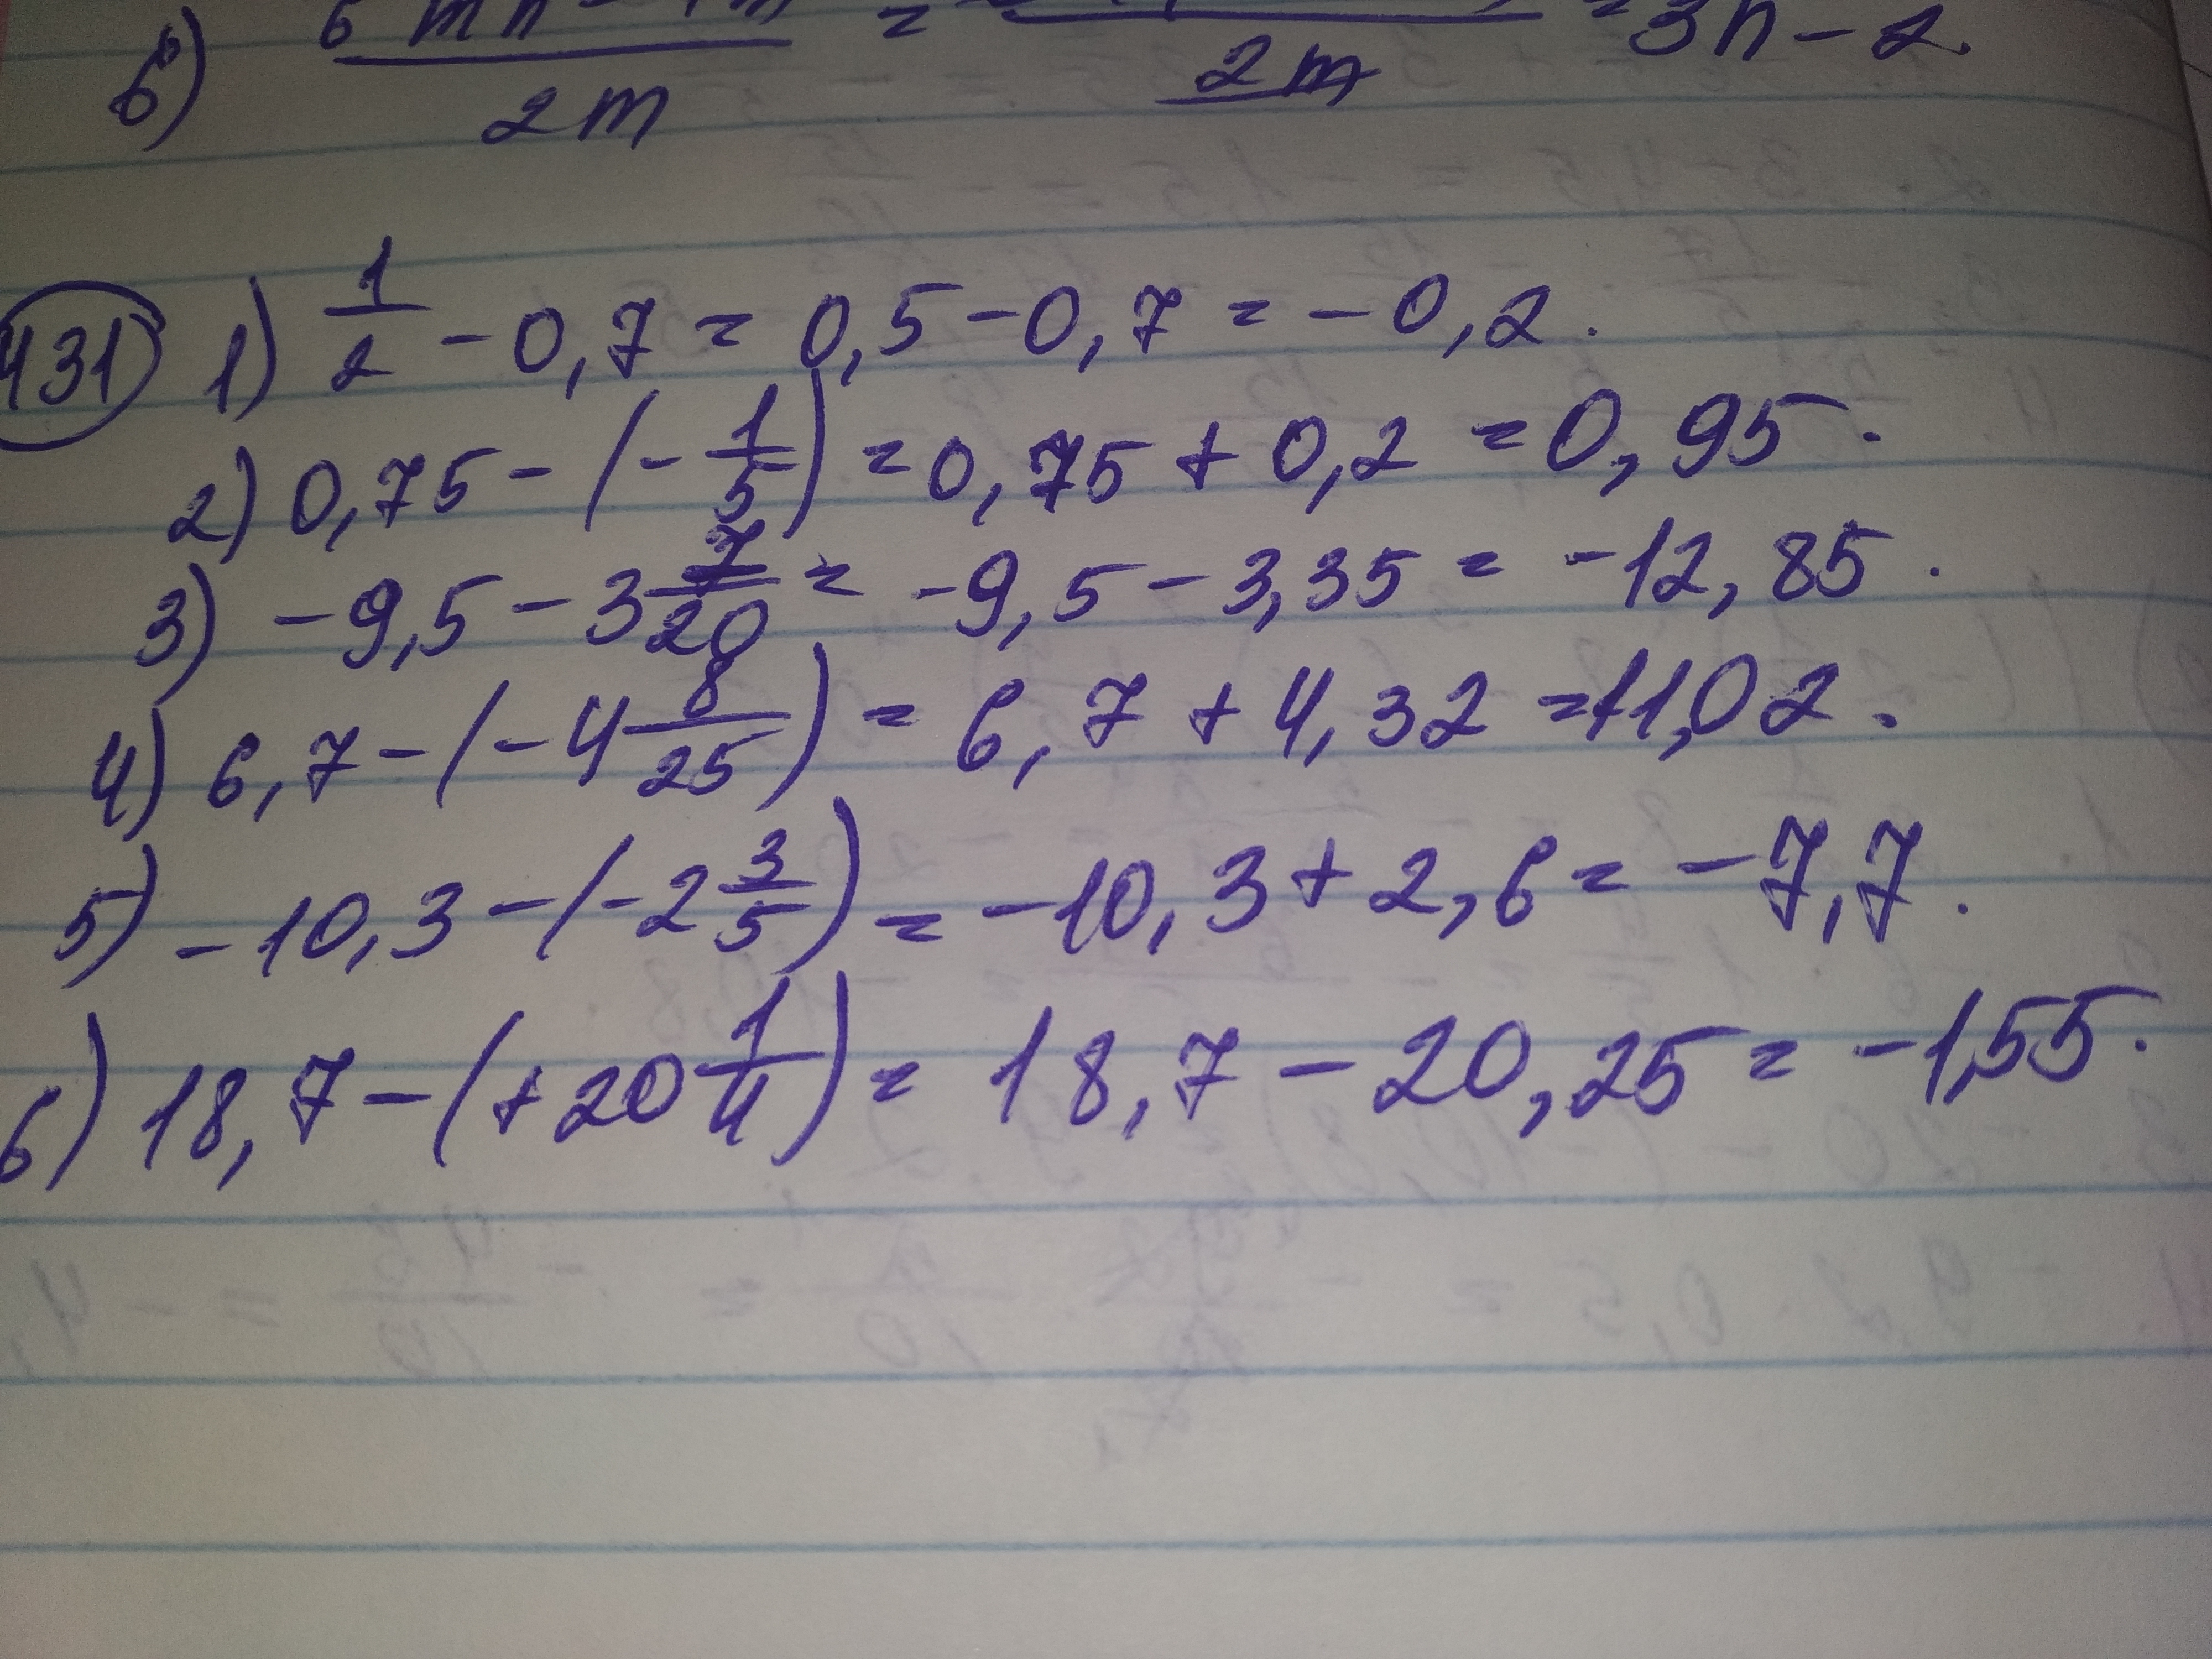 б) / 2m = / 2m = 3n - 2.
431 1) 1/2 - 0,7 = 0,5 - 0,7 = - 0,2.
2) 0,75 - (- 1/5) = 0,75 + 0,2 = 0,95.
3) - 9,5 - 3 7/20 = - 9,5 - 3,35 = - 12,85.
4) 6,7 - (- 4 8/25) = 6,7 + 4,32 = 11,02.
5) - 10,3 - (- 2 3/5) = - 10,3 + 2,6 = - 7,7.
6) 18,7 - (+ 20 1/4) = 18,7 - 20,25 = - 1,55.